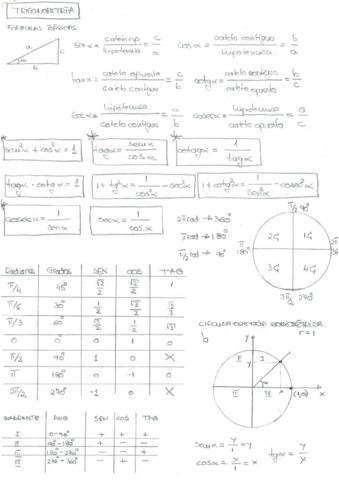 TRIGONOMETRÍA
FÓRMULAS BÁSICAS
a
c
b
sen α = cateto op / hipotenusa = c/a
cos α = cateto contiguo / hipotenusa = b/a
tan α = cateto opuesto / cateto contiguo = c/b
cotg α = cateto contiguo / cateto opuesto = b/c
sec α = hipotenusa / cateto contiguo = a/b
cosec α = hipotenusa / cateto opuesto = a/c
sen²α + cos²α = 1
tag α = sen α / cos α
cotag α = 1 / tag α
tag α · cotg α = 1
1 + tg²α = 1/cos²α = sec²α
1 + cotg²α = 1/sen²α = cosec²α
cosec α = 1 / sen α
sec α = 1 / cos α
2π rad → 360°
π rad → 180°
π/2 rad → 90°
π/2 90°
π 180°
2π 36
3π/2 270°
2C 1C
3C 4C
Radianes Grados SEN COS TAG
π/4 45° √2/2 √2/2 1
π/6 30° 1/2 √3/2 √3/3
π/3 60° √3/2 1/2 √3
0 0° 0 1 0
π/2 90° 1 0 X
π 180° 0 -1 0
3π/2 270° -1 0 X
CIRCUNFERENCIA GONIOMÉTRICA
r = 1
b
y
II I
III IV
(1,0)
x
CUADRANTE ANG SEN COS TAG
I 0-90° + + +
II 90°-180° + - -
III 180°-270° - - +
270°-360° - + -
sen α = y/1 = y
cos α = x/1 = x
tg α = y/x